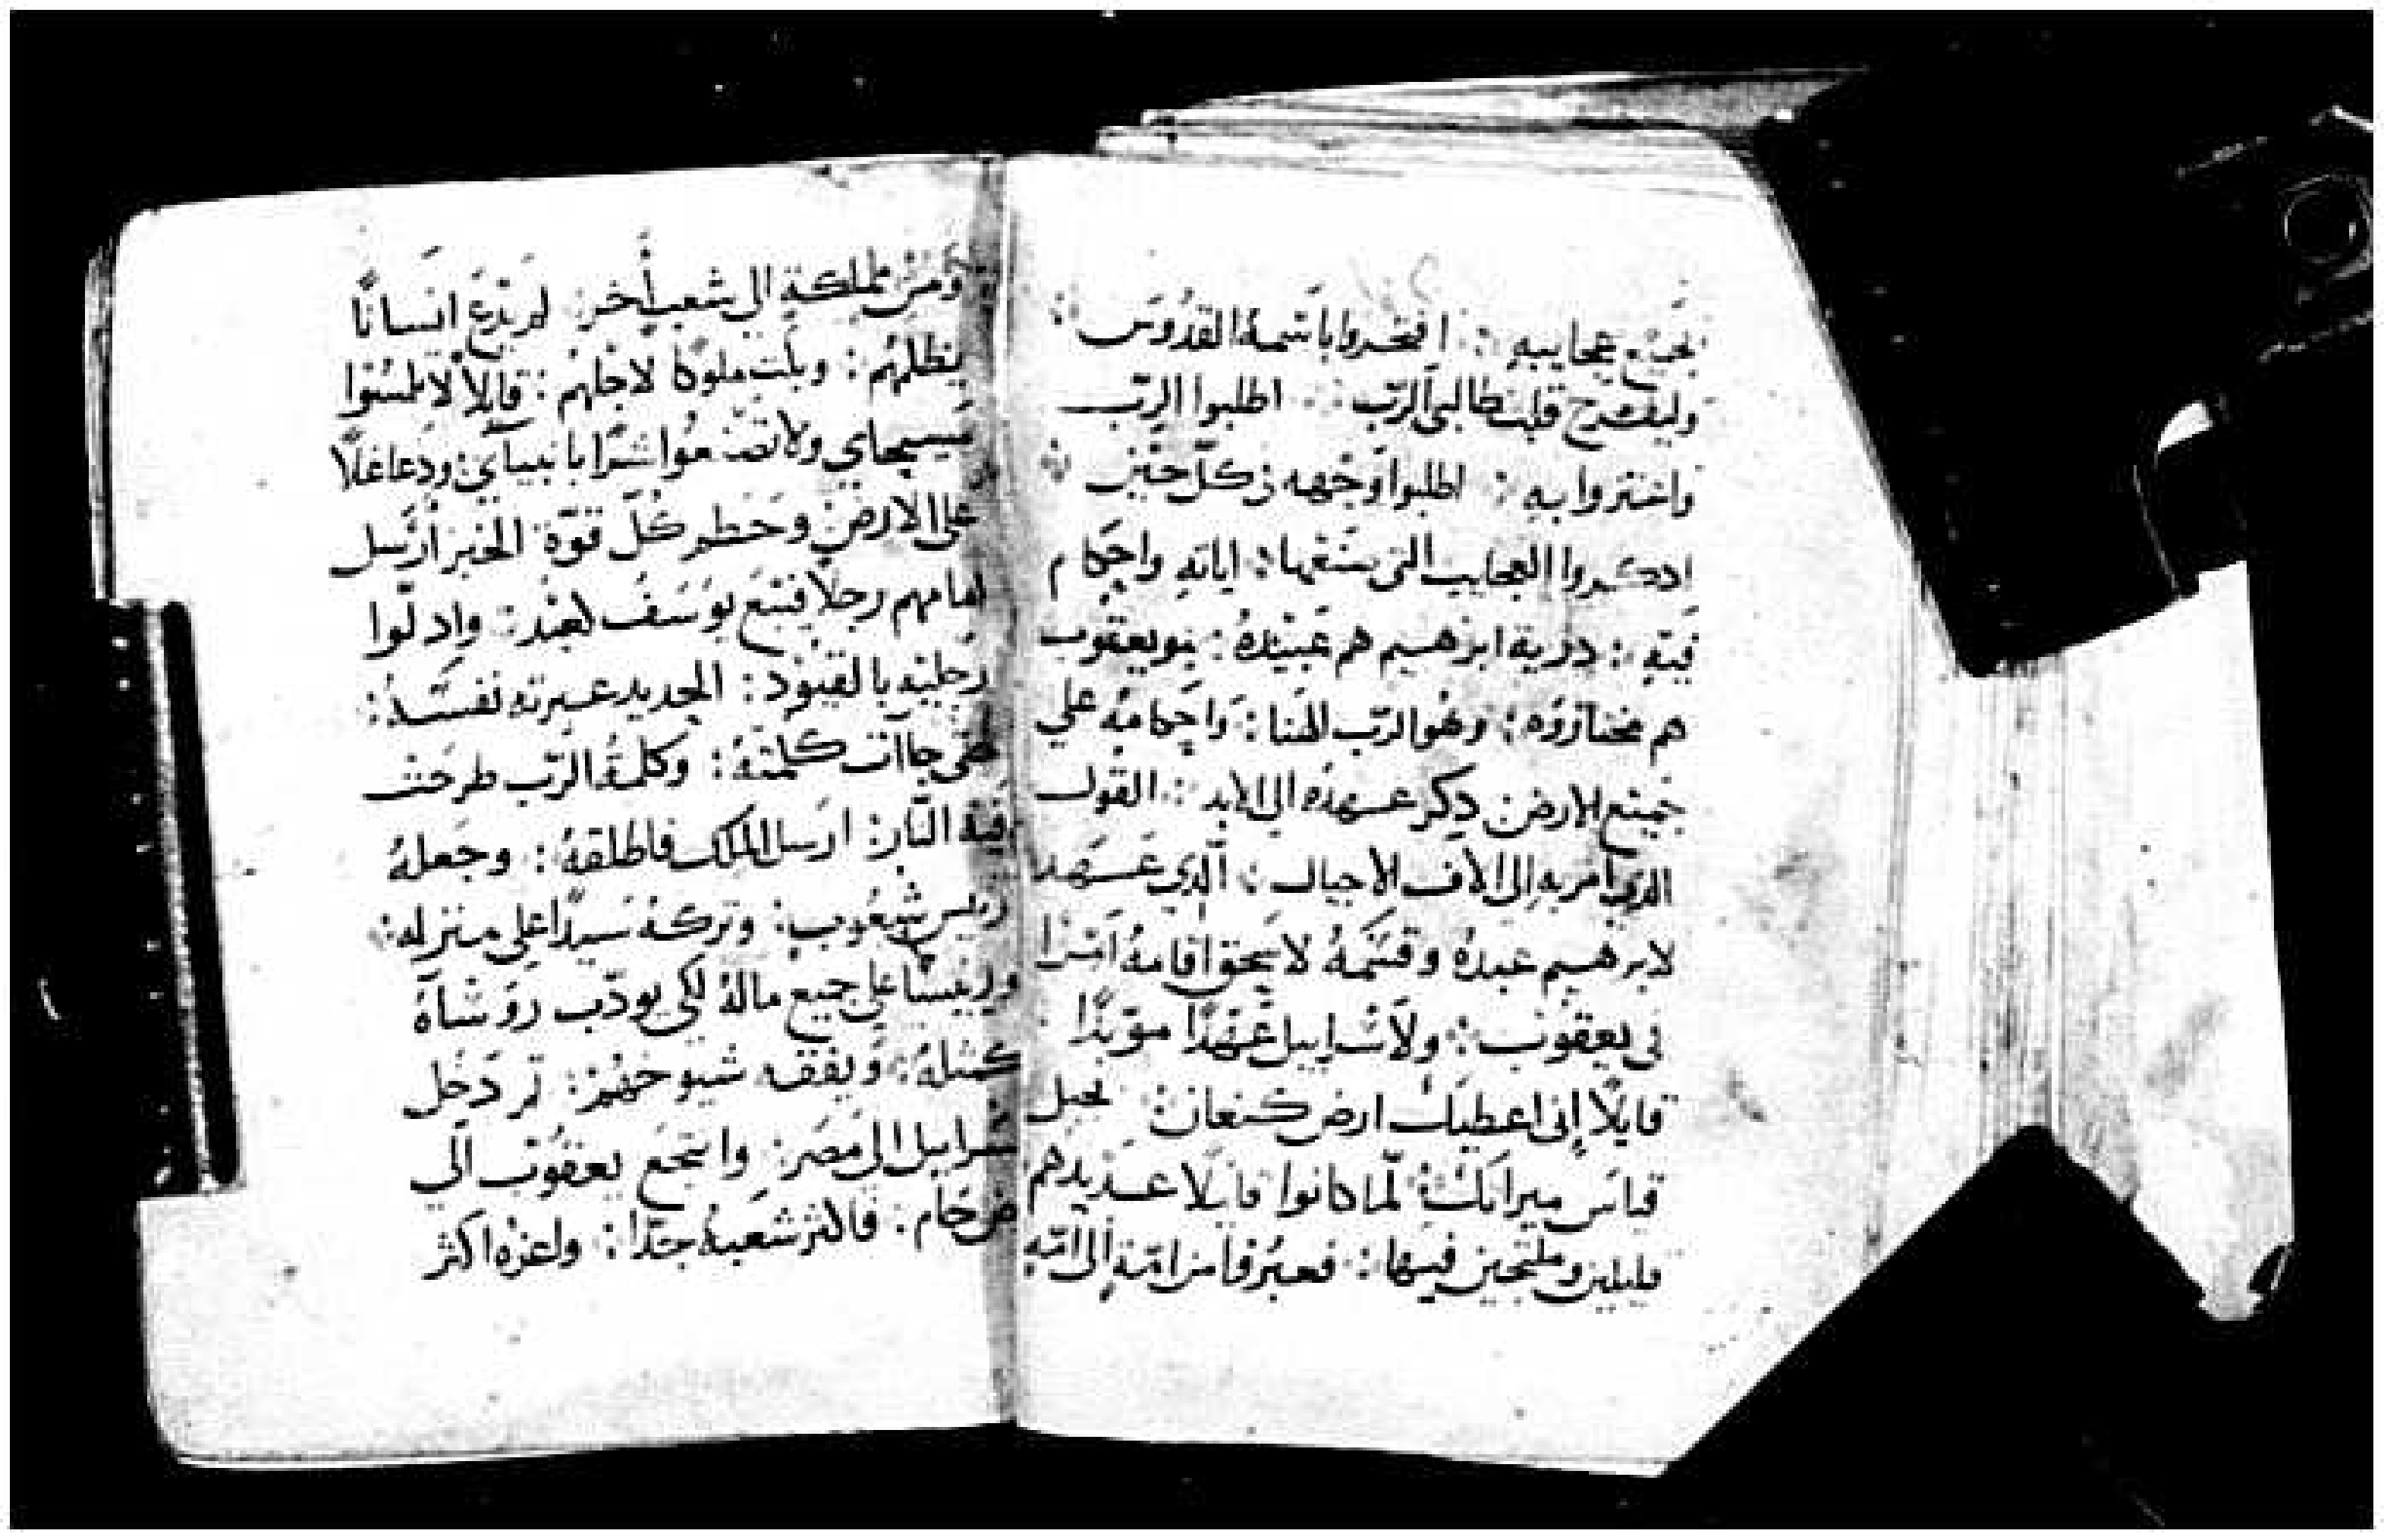 بجميع عجايبه : افتخروا باسمه القدوس :
وليفرح قلب طالبي الرب : اطلبوا الرب
واعتزوا به : اطلبوا وجهه في كل حين :
ادكروا العجايب التي صنعها : اياته واحكام
فيه : درية ابرهيم هم عبيده : بنو يعقوب
هم مختاروه : وهو الرب الهنا : واحكامه علي
جميع الارض دكر عهده الي الابد : القول
الدي امر به الي الاف الاجيال : الدي عهد
لابرهيم عبده وقسمه لاسحق اقامه امرا
في يعقوب : ولاسراييل عهدا موبدا
قايلا اني اعطيك ارض كنعان : لحبل
قياس ميراتك : لما كانوا قايلا عديدهم
قليلين وملتجين فيها : فعبروا من امة الي امة
ومن مملكة الي شعب اخر : لم يدع انسانا
يظلمهم : وبكت ملوكا لاجلهم : قايلا لا تلمسوا
مسيحاي ولا تصنعوا شرا بانبيآي : ودعا غلا
علي الارض وحطم كل قوة الخبز ارسل
امامهم رجلا فبيع يوسف لعبد : وادلوا
رجليه بالقيود : الحديد عبرته نفسه :
حتي جاات كلمته : وكلمة الرب طرحت
فيه النار : ارسل الملك فاطلقه : وجعله
رييس شعوب : وتركه سيدا علي منزله :
ورييسا علي جميع ماله لكي يودب روسآه
كمثله : ويفقه شيوخهم : تم دخل
سراييل الي مصر : والتجع يعقوب الي
ارض حام : فاكثر شعبه جدا : واعزه اكثر